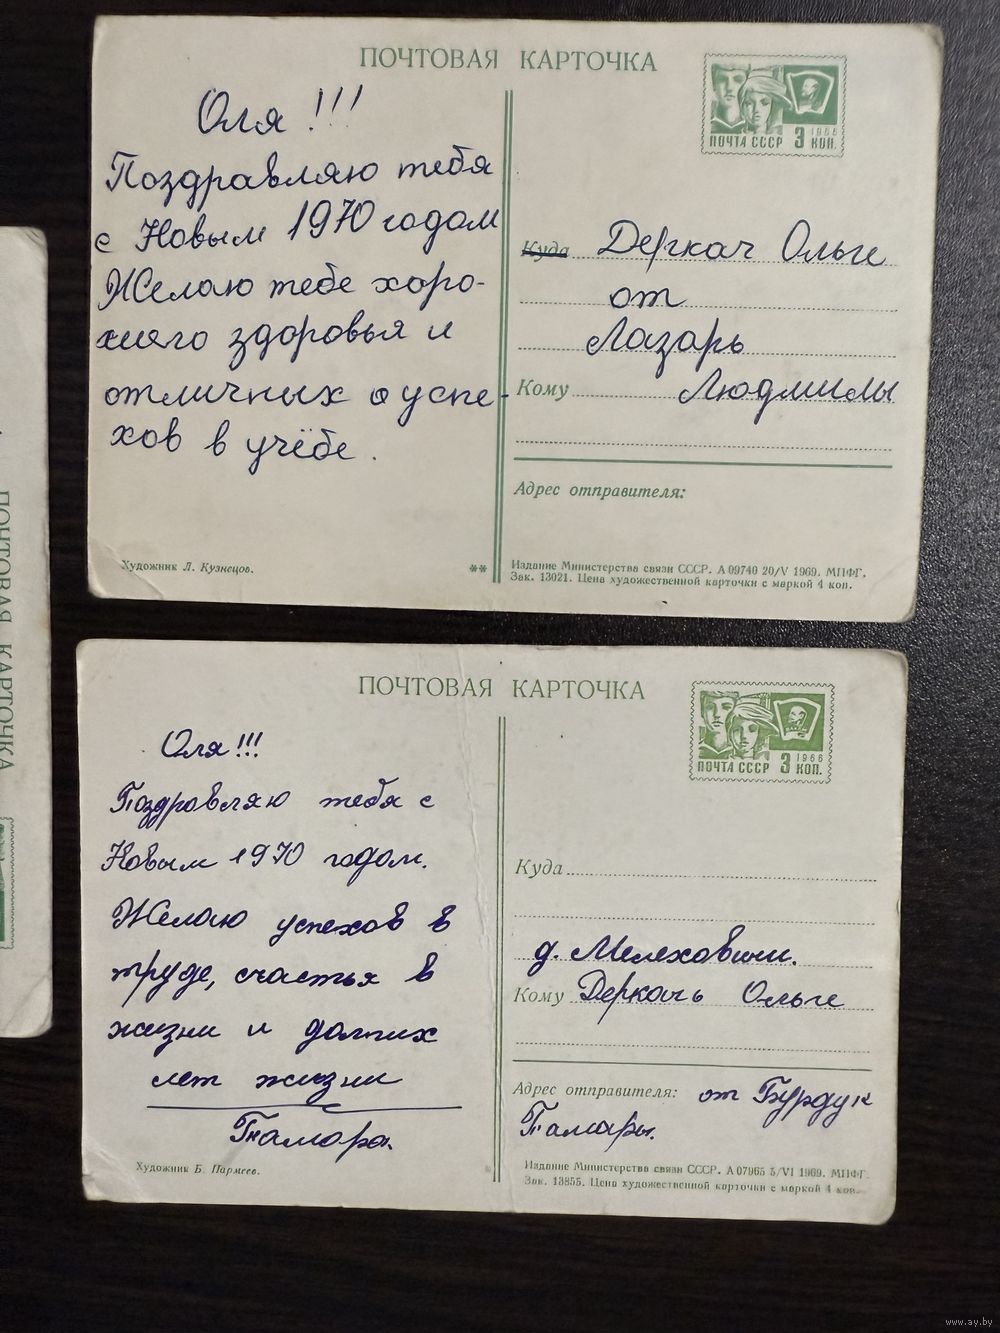 ПОЧТОВАЯ КАРТОЧКА
ПОЧТА СССР 3 КОП. 1966
Оля!!!
Поздравляю тебя
с Новым 1970 годом
Желаю тебе хоро-
шего здоровья и
отличных о успе-
хов в учёбе.
Куда Деркач Ольге
от
Лазарь
Кому Людмилы
Адрес отправителя:
Художник Л. Кузнецов.
**
Издание Министерства связи СССР. А 09740 20/V 1969. МПФГ.
Зак. 13021. Цена художественной карточки с маркой 4 коп.
ПОЧТОВАЯ КАРТОЧКА
ПОЧТА СССР 3 КОП. 1966
Оля!!!
Поздравляю тебя с
Новым 1970 годом.
Желаю успехов в
труде, счастья в
жизни и долгих
лет жизни
Тамара.
Куда
д. Мелеховичи.
Кому Деркачь Ольге
Адрес отправителя: от Бурдук
Тамары.
Художник Б. Пармеев.
*
Издание Министерства связи СССР. А 07965 5/VI 1969. МПФГ.
Зак. 13855. Цена художественной карточки с маркой 4 коп.
ПОЧТОВАЯ КАРТОЧКА
www.ay.by